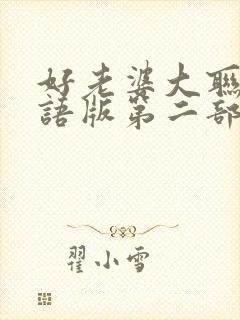 好老婆大聯
語版第二部
翟小雪